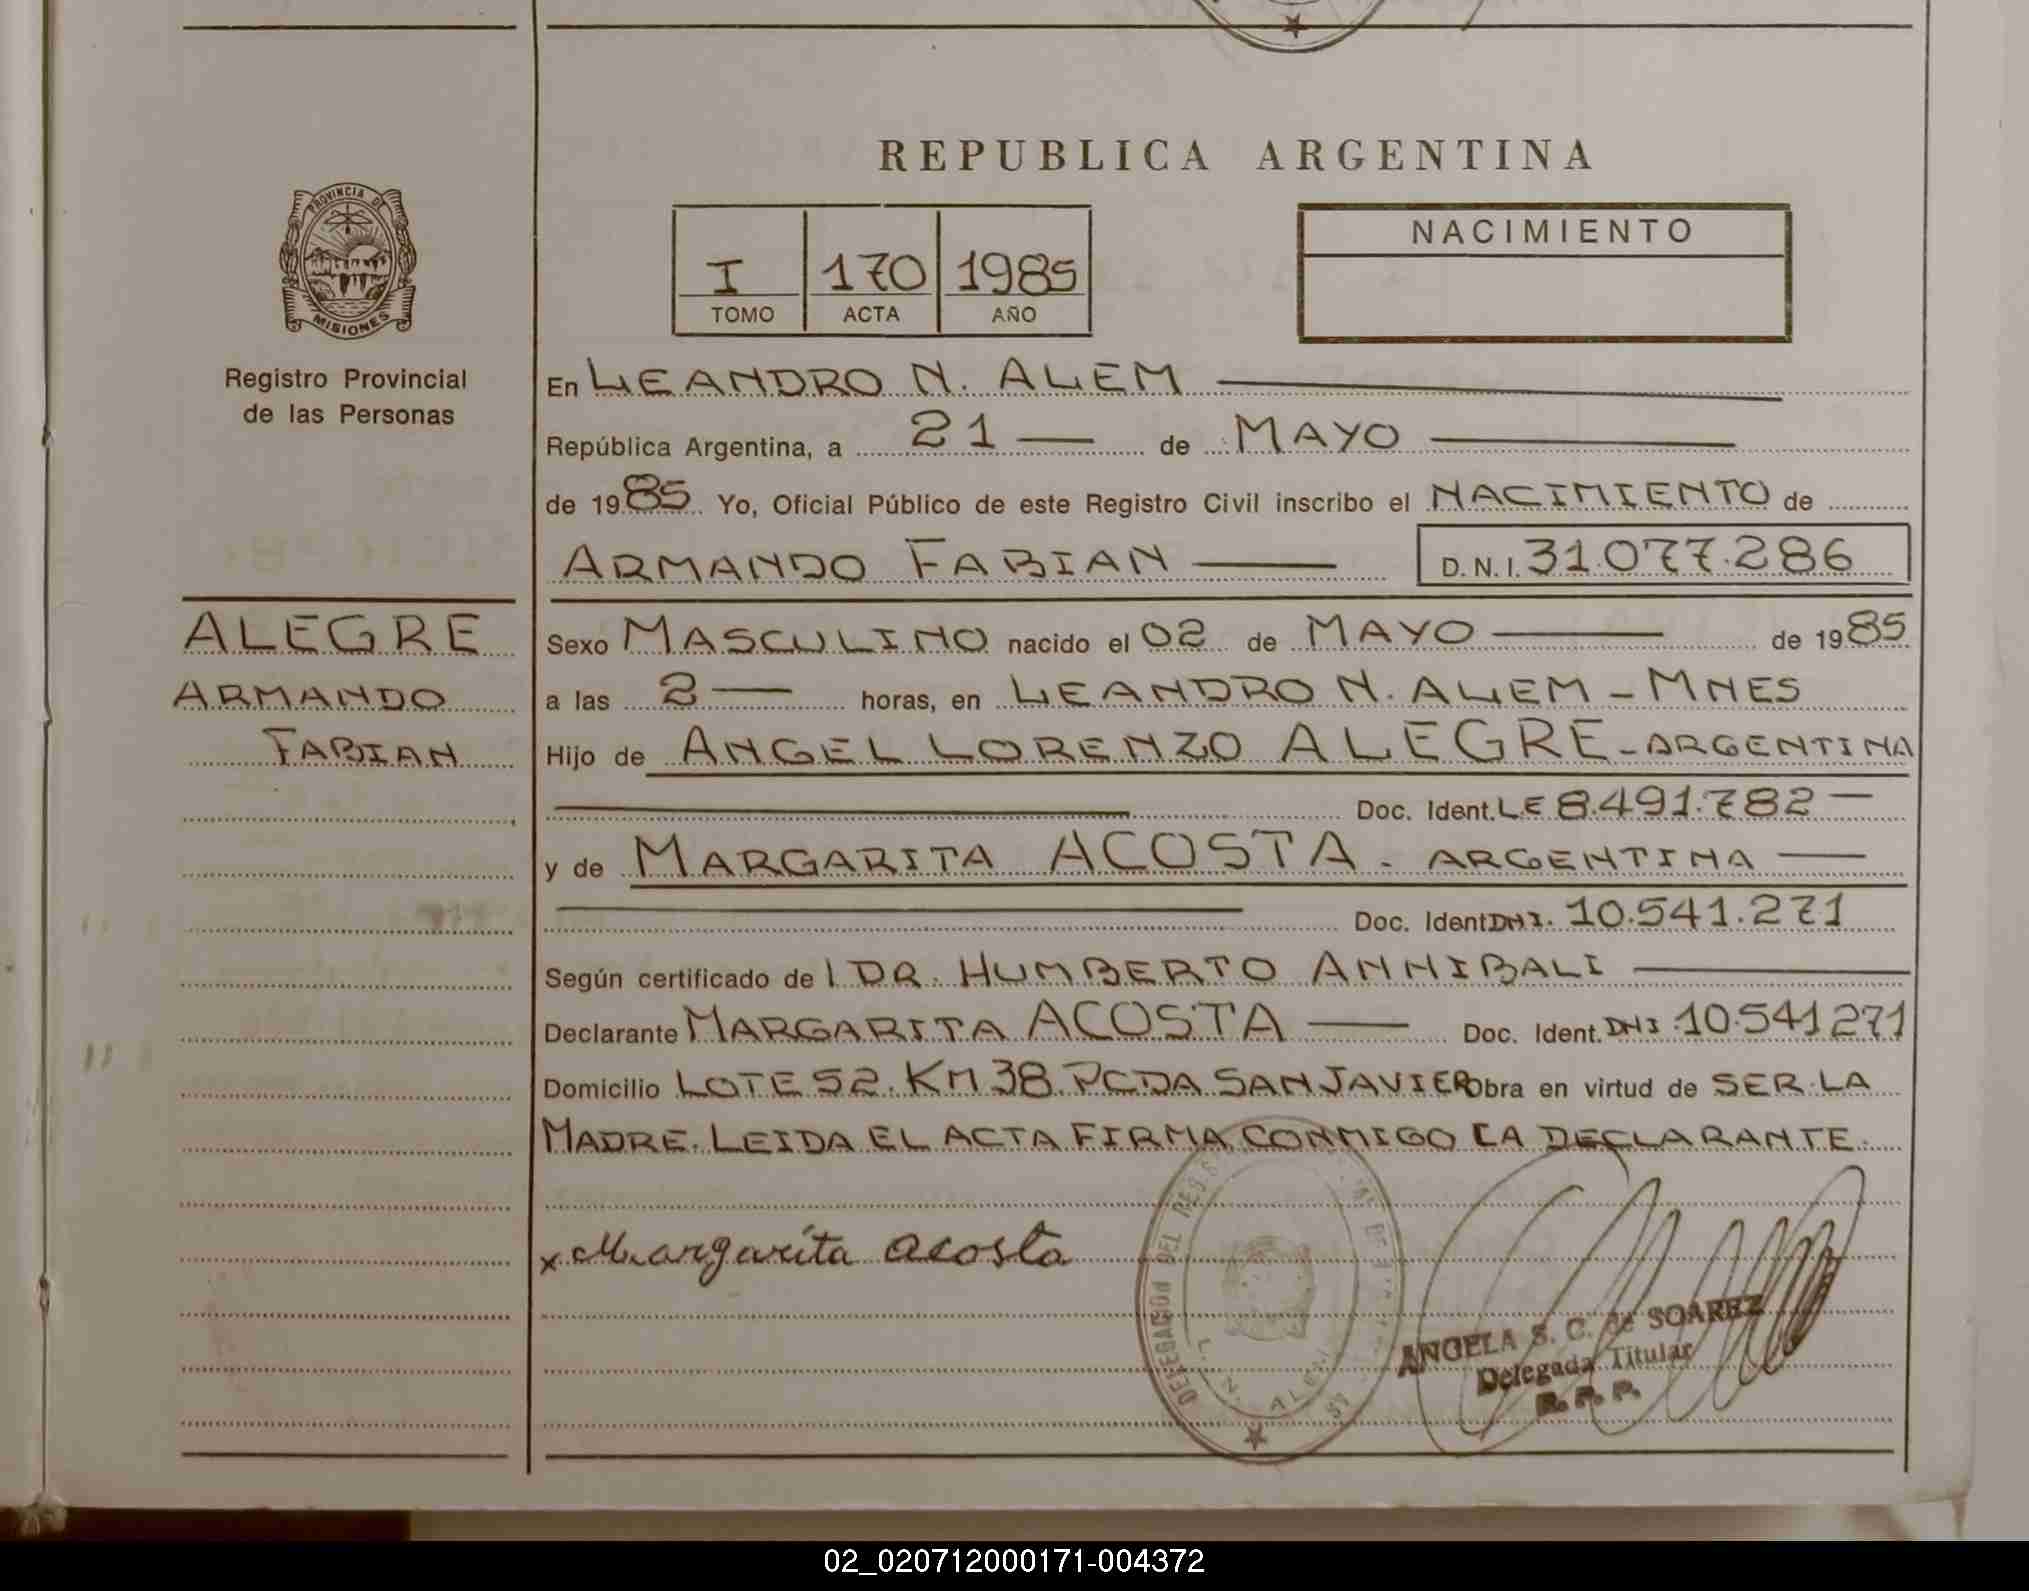 REPUBLICA ARGENTINA
PROVINCIA DE
MISIONES
Registro Provincial
de las Personas
I 170 1985
TOMO ACTA AÑO
NACIMIENTO
En LEANDRO N. ALEM
República Argentina, a 21 de MAYO
de 1985 Yo, Oficial Público de este Registro Civil inscribo el NACIMIENTO de
ARMANDO FABIAN D.N.I. 31.077.286
ALEGRE
ARMANDO
FABIAN
Sexo MASCULINO nacido el 02 de MAYO de 1985
a las 2 horas, en LEANDRO N. ALEM - MNES
Hijo de ANGEL LORENZO ALEGRE - ARGENTINA
Doc. Ident. L.E 8.491.782
y de MARGARITA ACOSTA - ARGENTINA
Doc. Ident DNI. 10.541.271
Según certificado de l DR. HUMBERTO ANNIBALI
Declarante MARGARITA ACOSTA Doc. Ident. DNI 10.541271
Domicilio LOTE 52. KM 38. PCDA SAN JAVIER Obra en virtud de SER LA
MADRE. LEIDA EL ACTA FIRMA CONMIGO LA DECLARANTE.
x Margarita acosta
DELEGACION DEL REG
L. N. ALEM
ANGELA S. C. de SOAREZ
Delegada Titular
R. P. P.
02_020712000171-004372